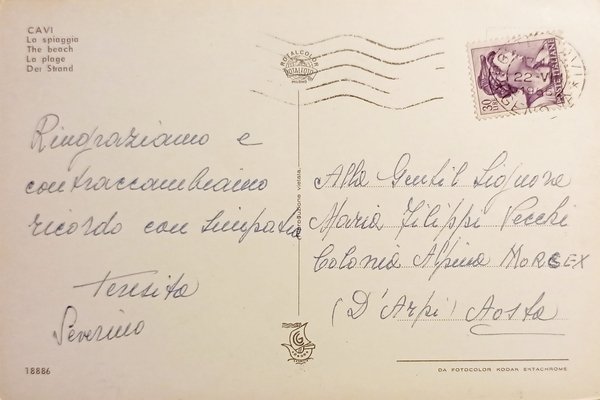 CAVI
La spiaggia
The beach
La plage
Der Strand
ROTALCOLOR
ROTALFOTO
MILANO
22-VI
30
LIRE
Ringraziamo e
contraccambiamo
ricordo con simpatia
Teresita
Severino
riproduzione vietata
Alla Gentil Signora
Maria Filippi Vecchi
Colonia Alpina MORGEX
(D'Arpi) Aosta
18886
DA FOTOCOLOR KODAK EKTACHROME